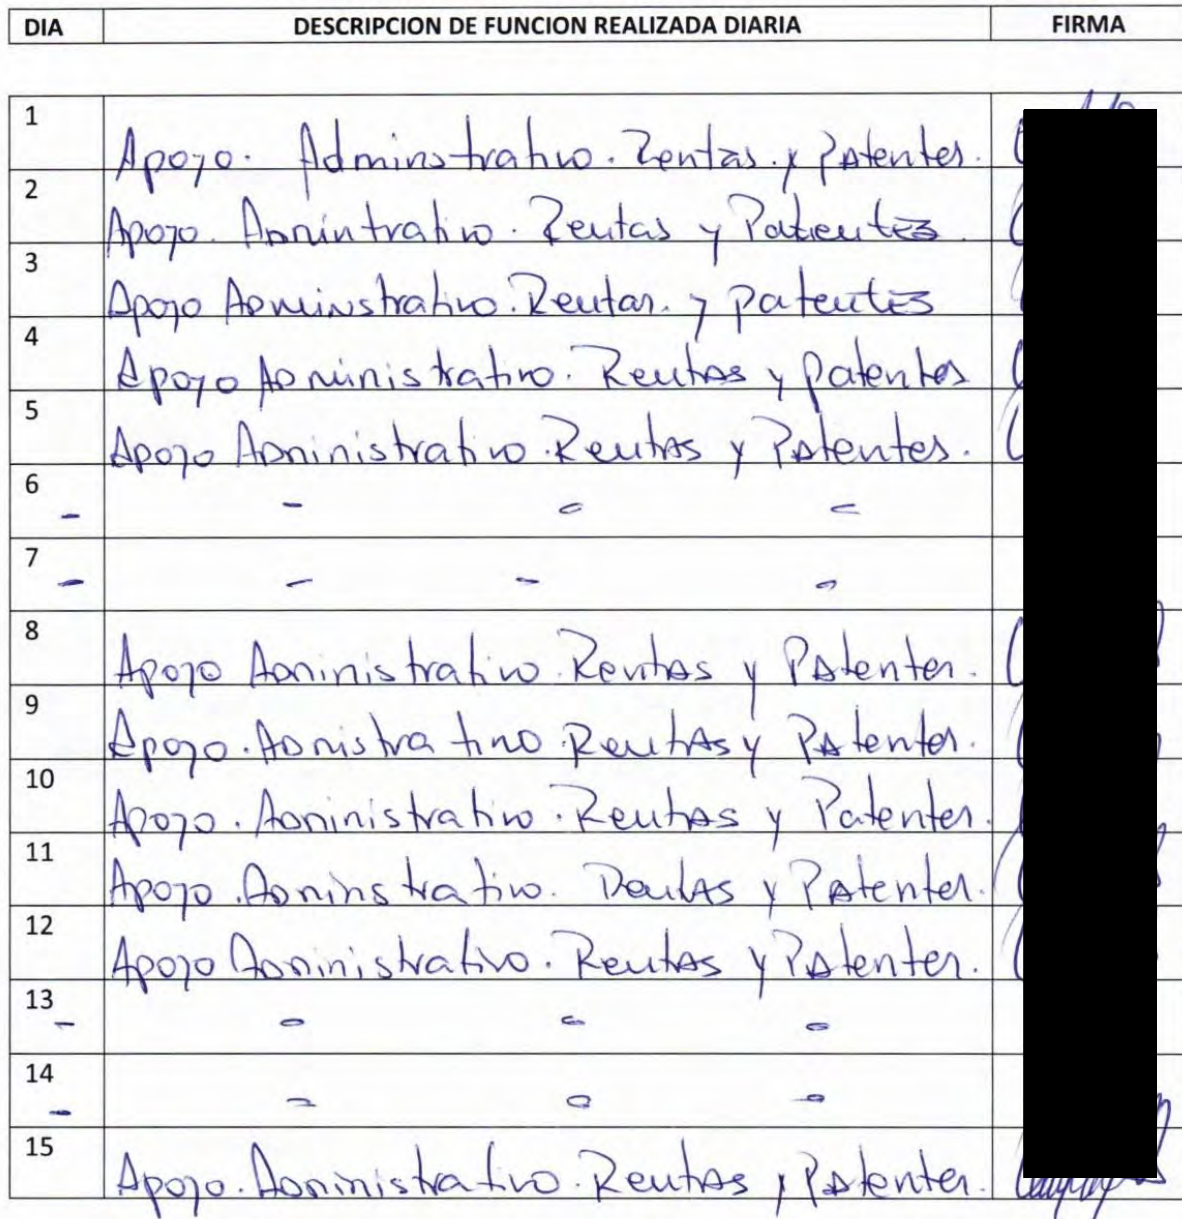 DIA DESCRIPCION DE FUNCION REALIZADA DIARIA FIRMA
1 Apoyo. Adminstrativo. Rentas. y Patentes.
2 Apoyo. Admintrativo. Rentas y Patentes.
3 Apoyo Adminstrativo. Rentas. y patentes
4 Apoyo Administrativo. Rentas y patentes
5 Apoyo Administrativo. Rentas y Patentes.
6
- - - -
7
- - - -
8 Apoyo Administrativo. Rentas y Patentes.
9 Apoyo. Admistrativo. Rentas y Patentes.
10 Apoyo. Administrativo. Rentas y Patentes.
11 Apoyo. Adminstrativo. Rentas y Patentes.
12 Apoyo Administrativo. Rentas y Patentes.
13
- - - -
14
- - - -
15 Apoyo. Administrativo. Rentas y Patentes.